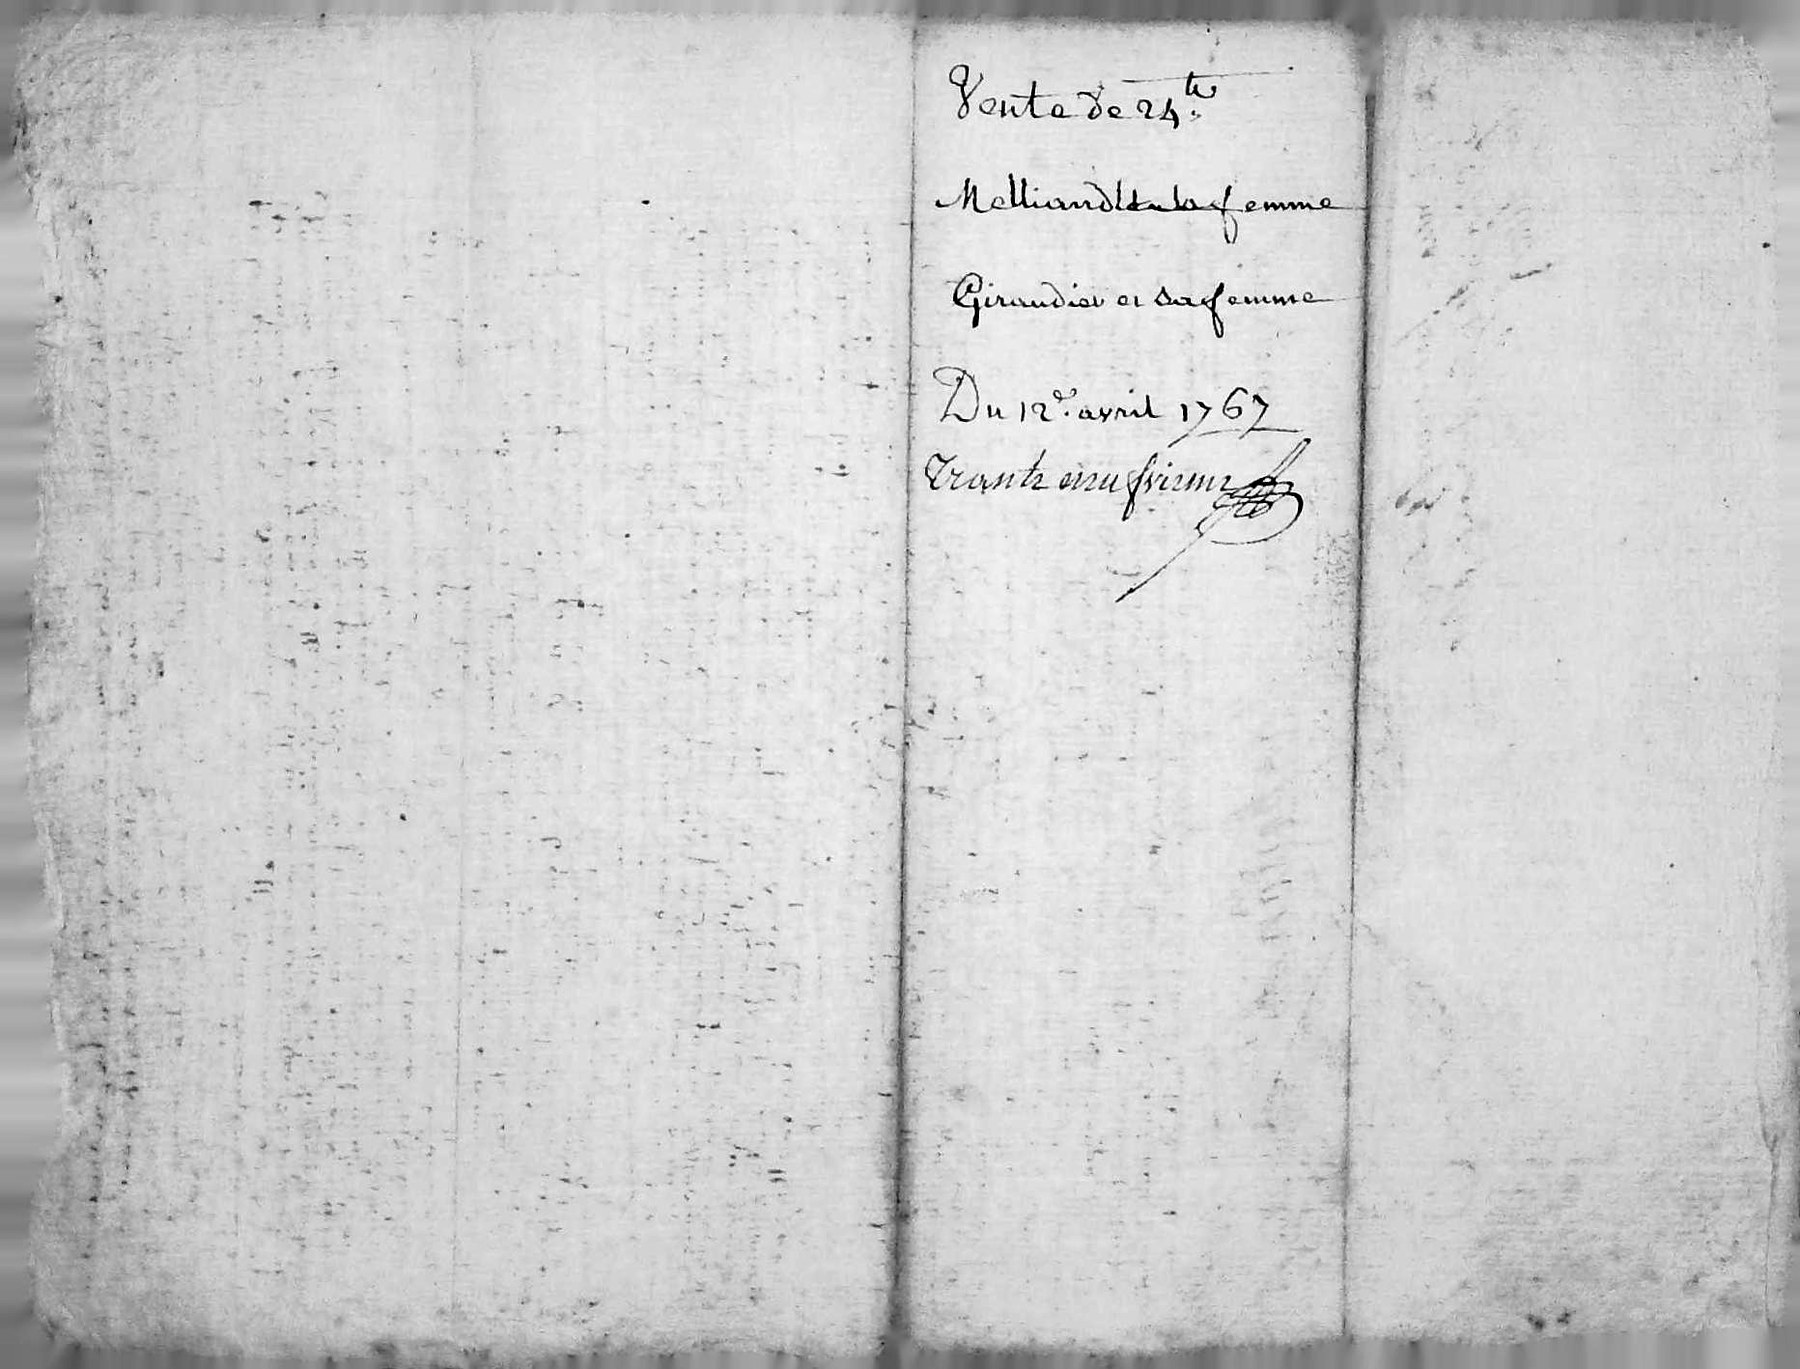 Vente de 24 tt
Melliand et sa femme
Giraudier et sa femme
Du 12e. avril 1767
Trante neufvieme